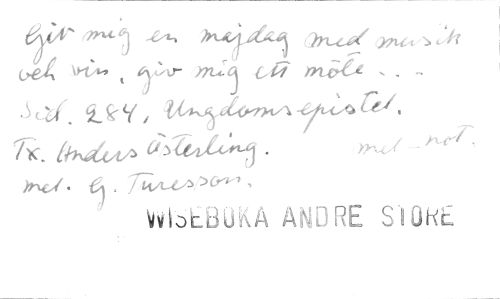 Giv mig en majdag med musik
och vin, giv mig ett möte...
Sid. 284, Ungdomsepistel.
Tx. Anders Österling. mel - not.
mel. G. Turesson.
WISEBOKA ANDRE STORE